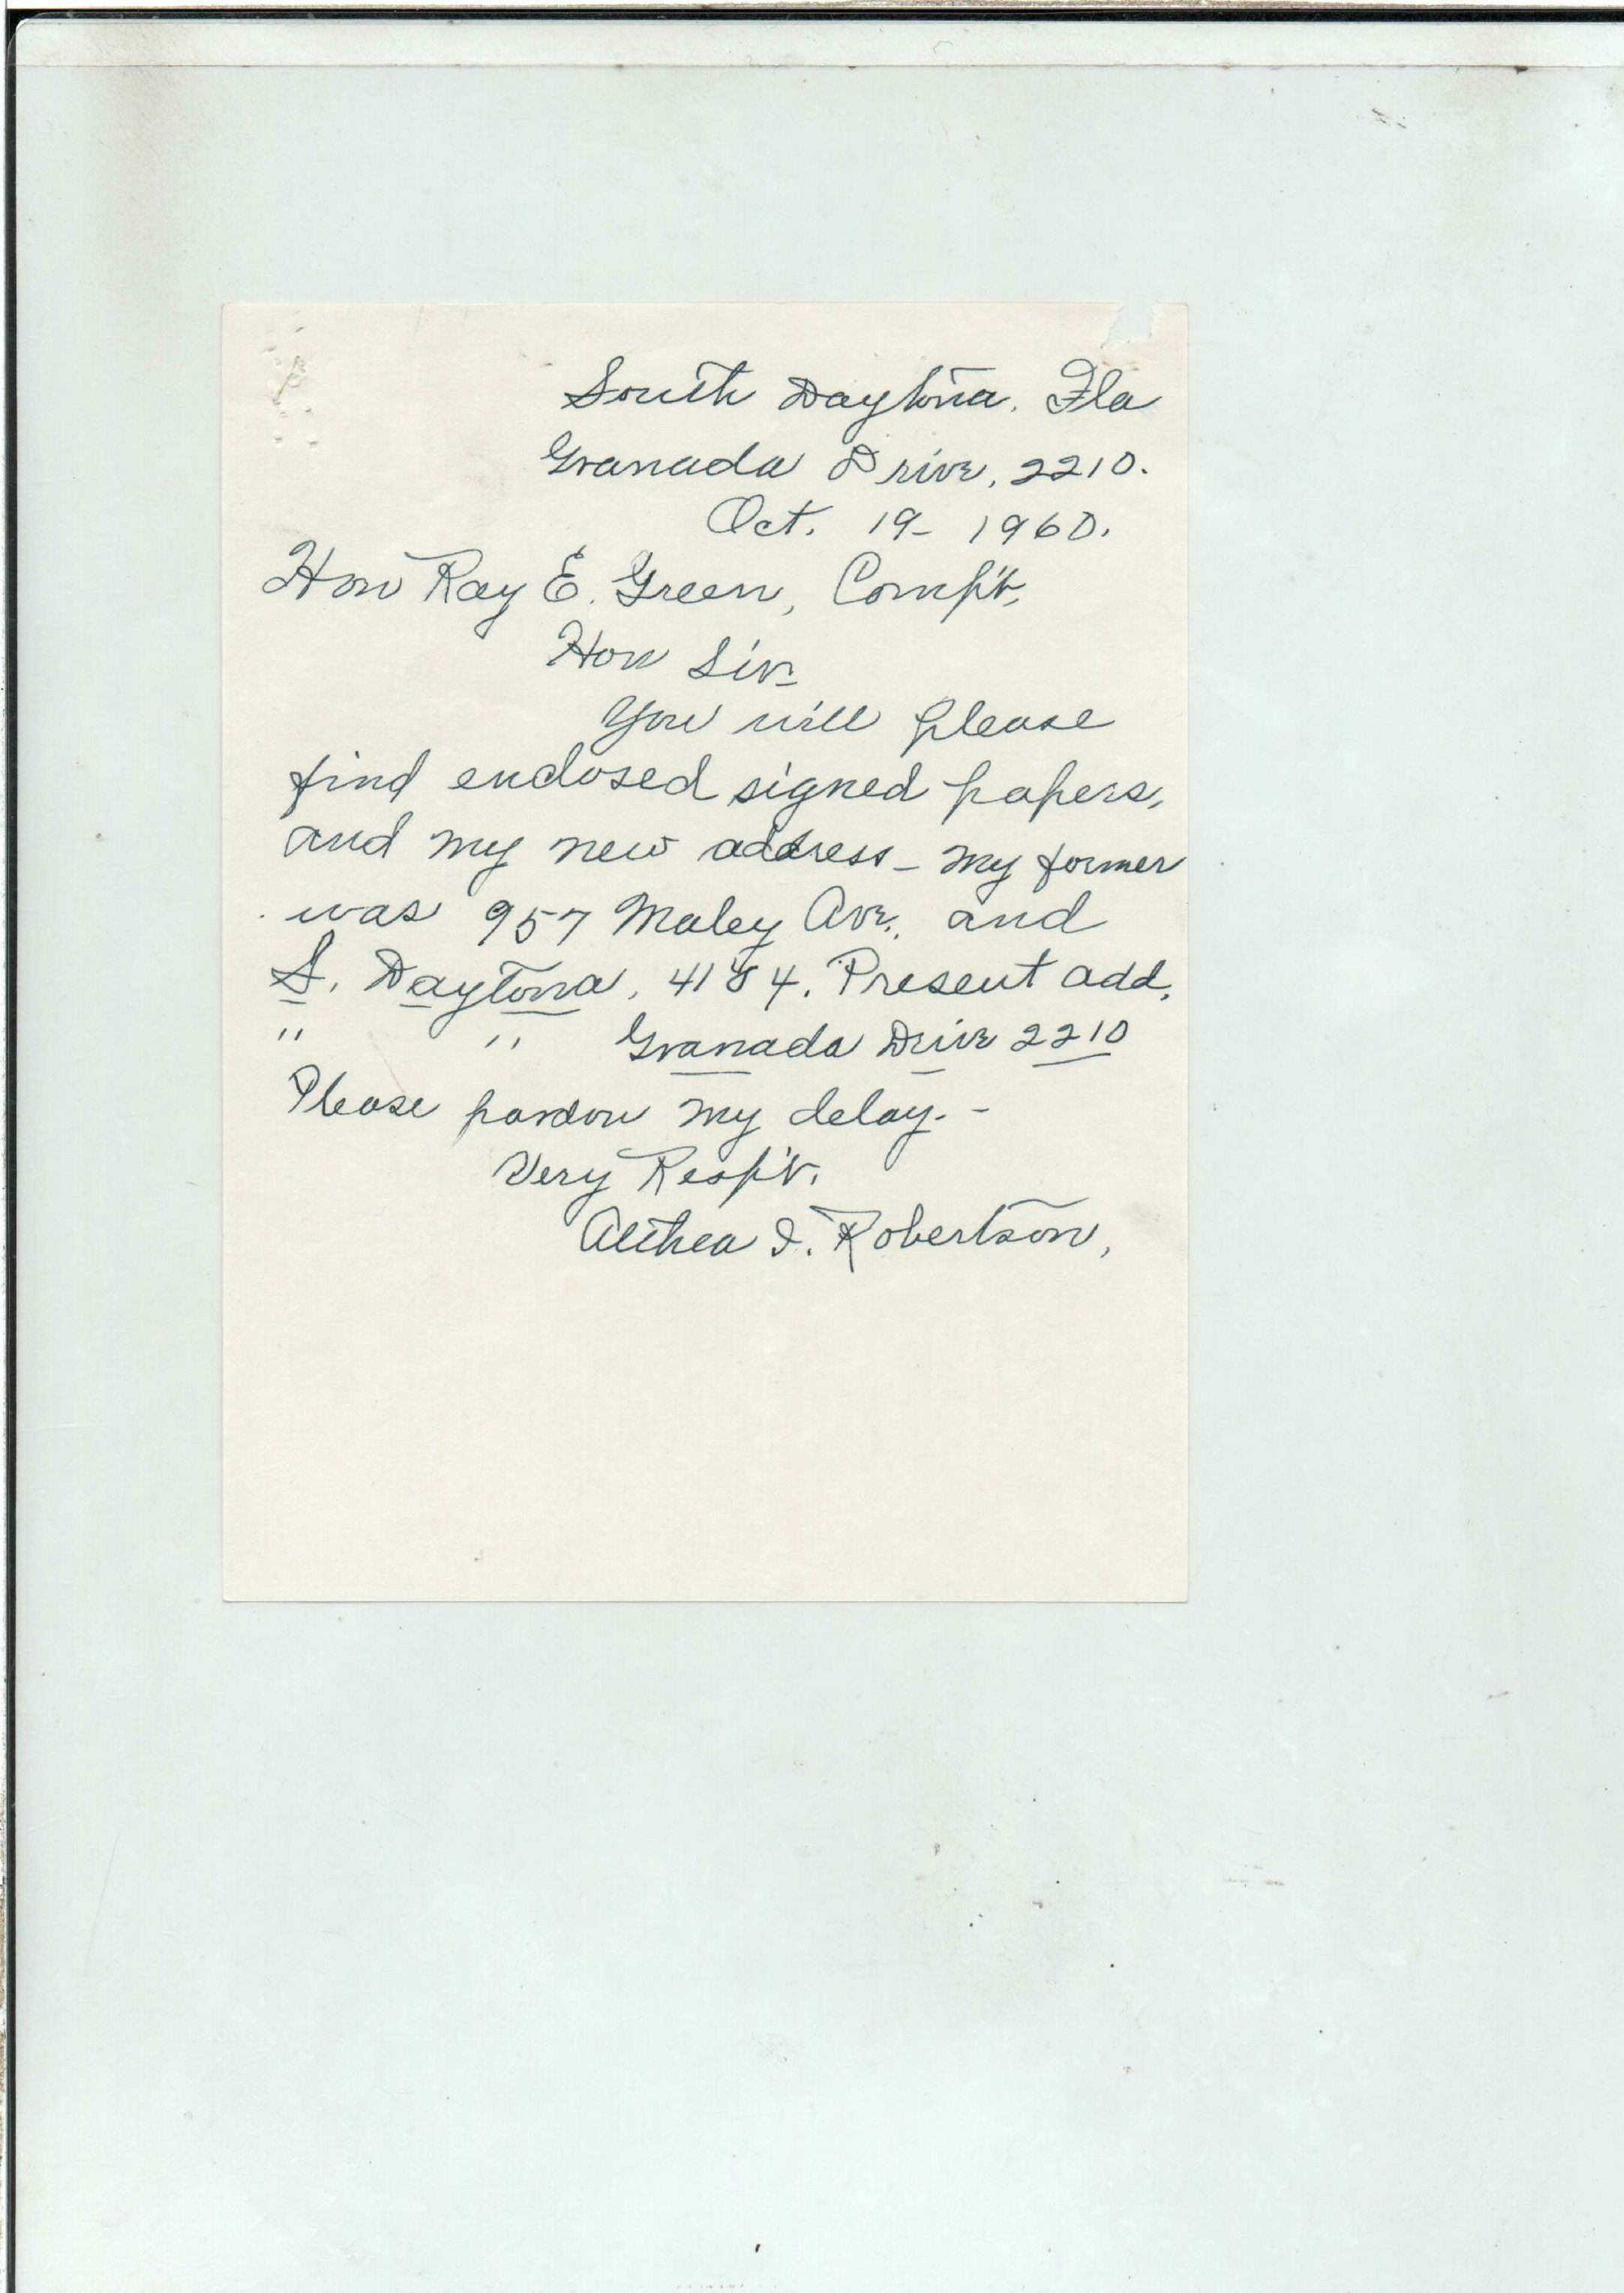 South Daytona, Fla
Granada Drive, 2210.
Oct. 19- 1960.
Hon Ray E. Green, Comp't,
Hon Sir-
You will please
find enclosed signed papers,
and my new address - my former
was 957 Maley Ave., and
S. Daytona, 4184. Present add,
" " Granada Drive 2210
Please pardon my delay.-
Very Resp't.
Althea I. Robertson,